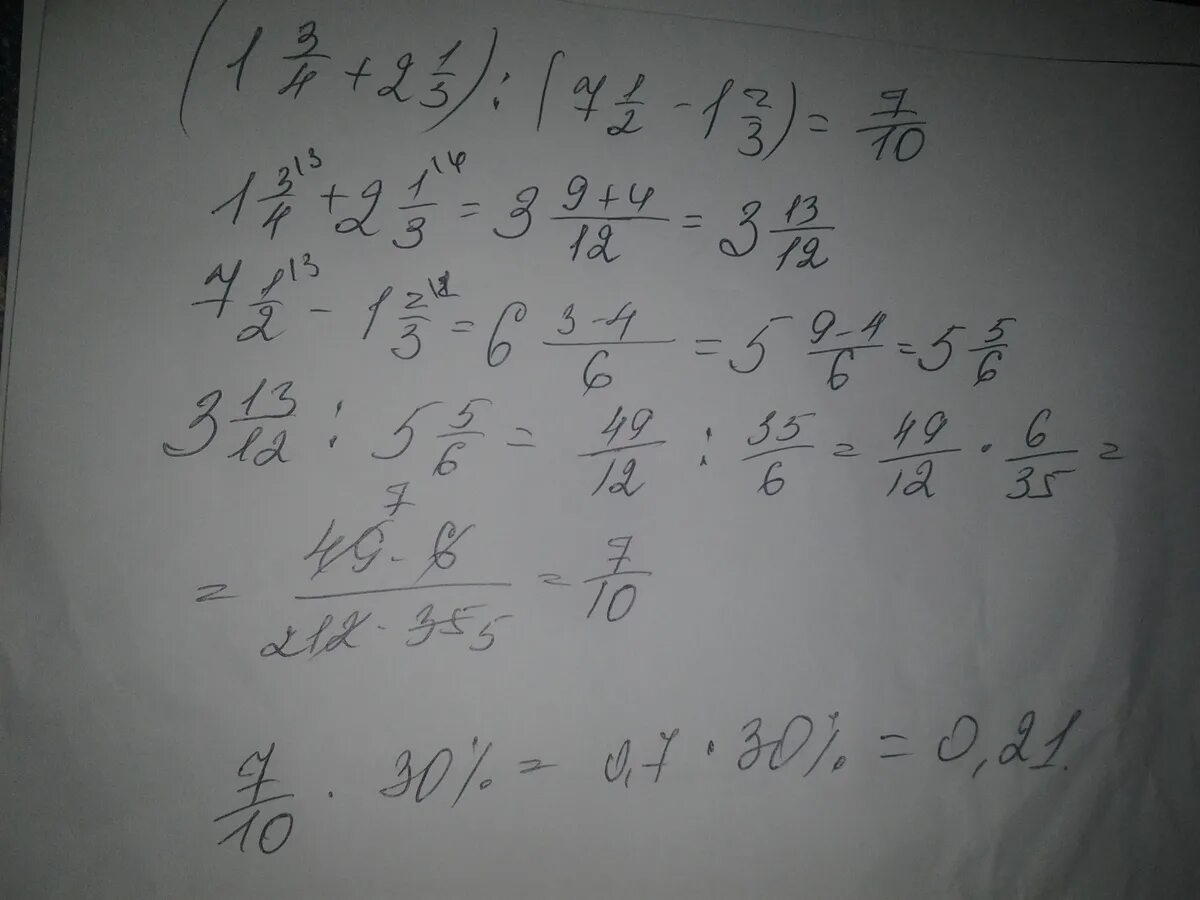 (1 3/4 + 2 1/3) : (7 1/2 - 1 2/3) = 7/10
1 3\3/4 + 2 1\4/3 = 3 9+4/12 = 3 13/12
7 1\3/2 - 1 2\2/3 = 6 3-4/6 = 5 9-4/6 = 5 5/6
3 13/12 : 5 5/6 = 49/12 : 35/6 = 49/12 · 6/35 =
7
= 49·6/2 12·35 5 = 7/10
7/10 · 30% = 0,7 · 30% = 0,21.